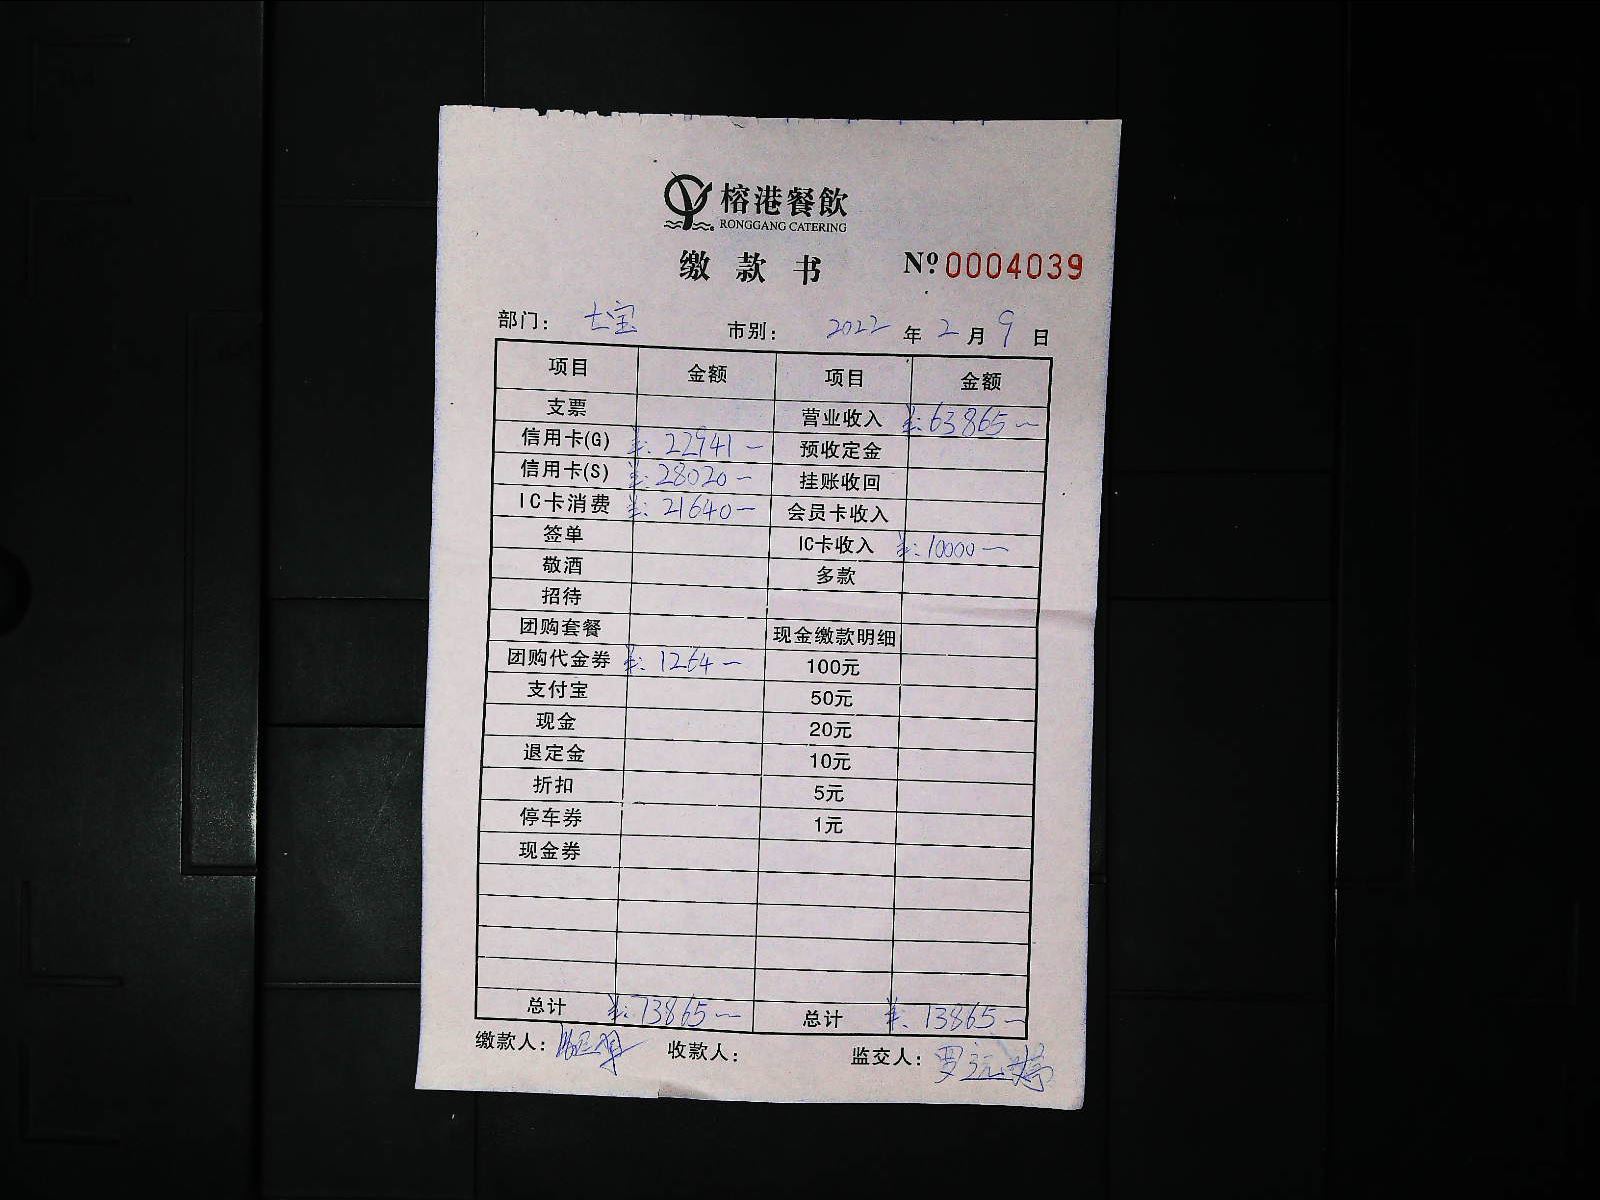 榕港餐飲
RONGGANG CATERING
缴款书 Nº 0004039
部门： 七宝 市别： 2022 年 2 月 9 日
项目 金额 项目 金额
支票 营业收入 ¥：63865—
信用卡(G) ¥：22941— 预收定金
信用卡(S) ¥：28020— 挂账收回
IC卡消费 ¥：21640— 会员卡收入
签单 IC卡收入 ¥：10000—
敬酒 多款
招待
团购套餐 现金缴款明细
团购代金券 ¥：1264— 100元
支付宝 50元
现金 20元
退定金 10元
折扣 5元
停车券 1元
现金券
总计 ¥：73865— 总计 ¥：73865—
缴款人： 收款人： 监交人：